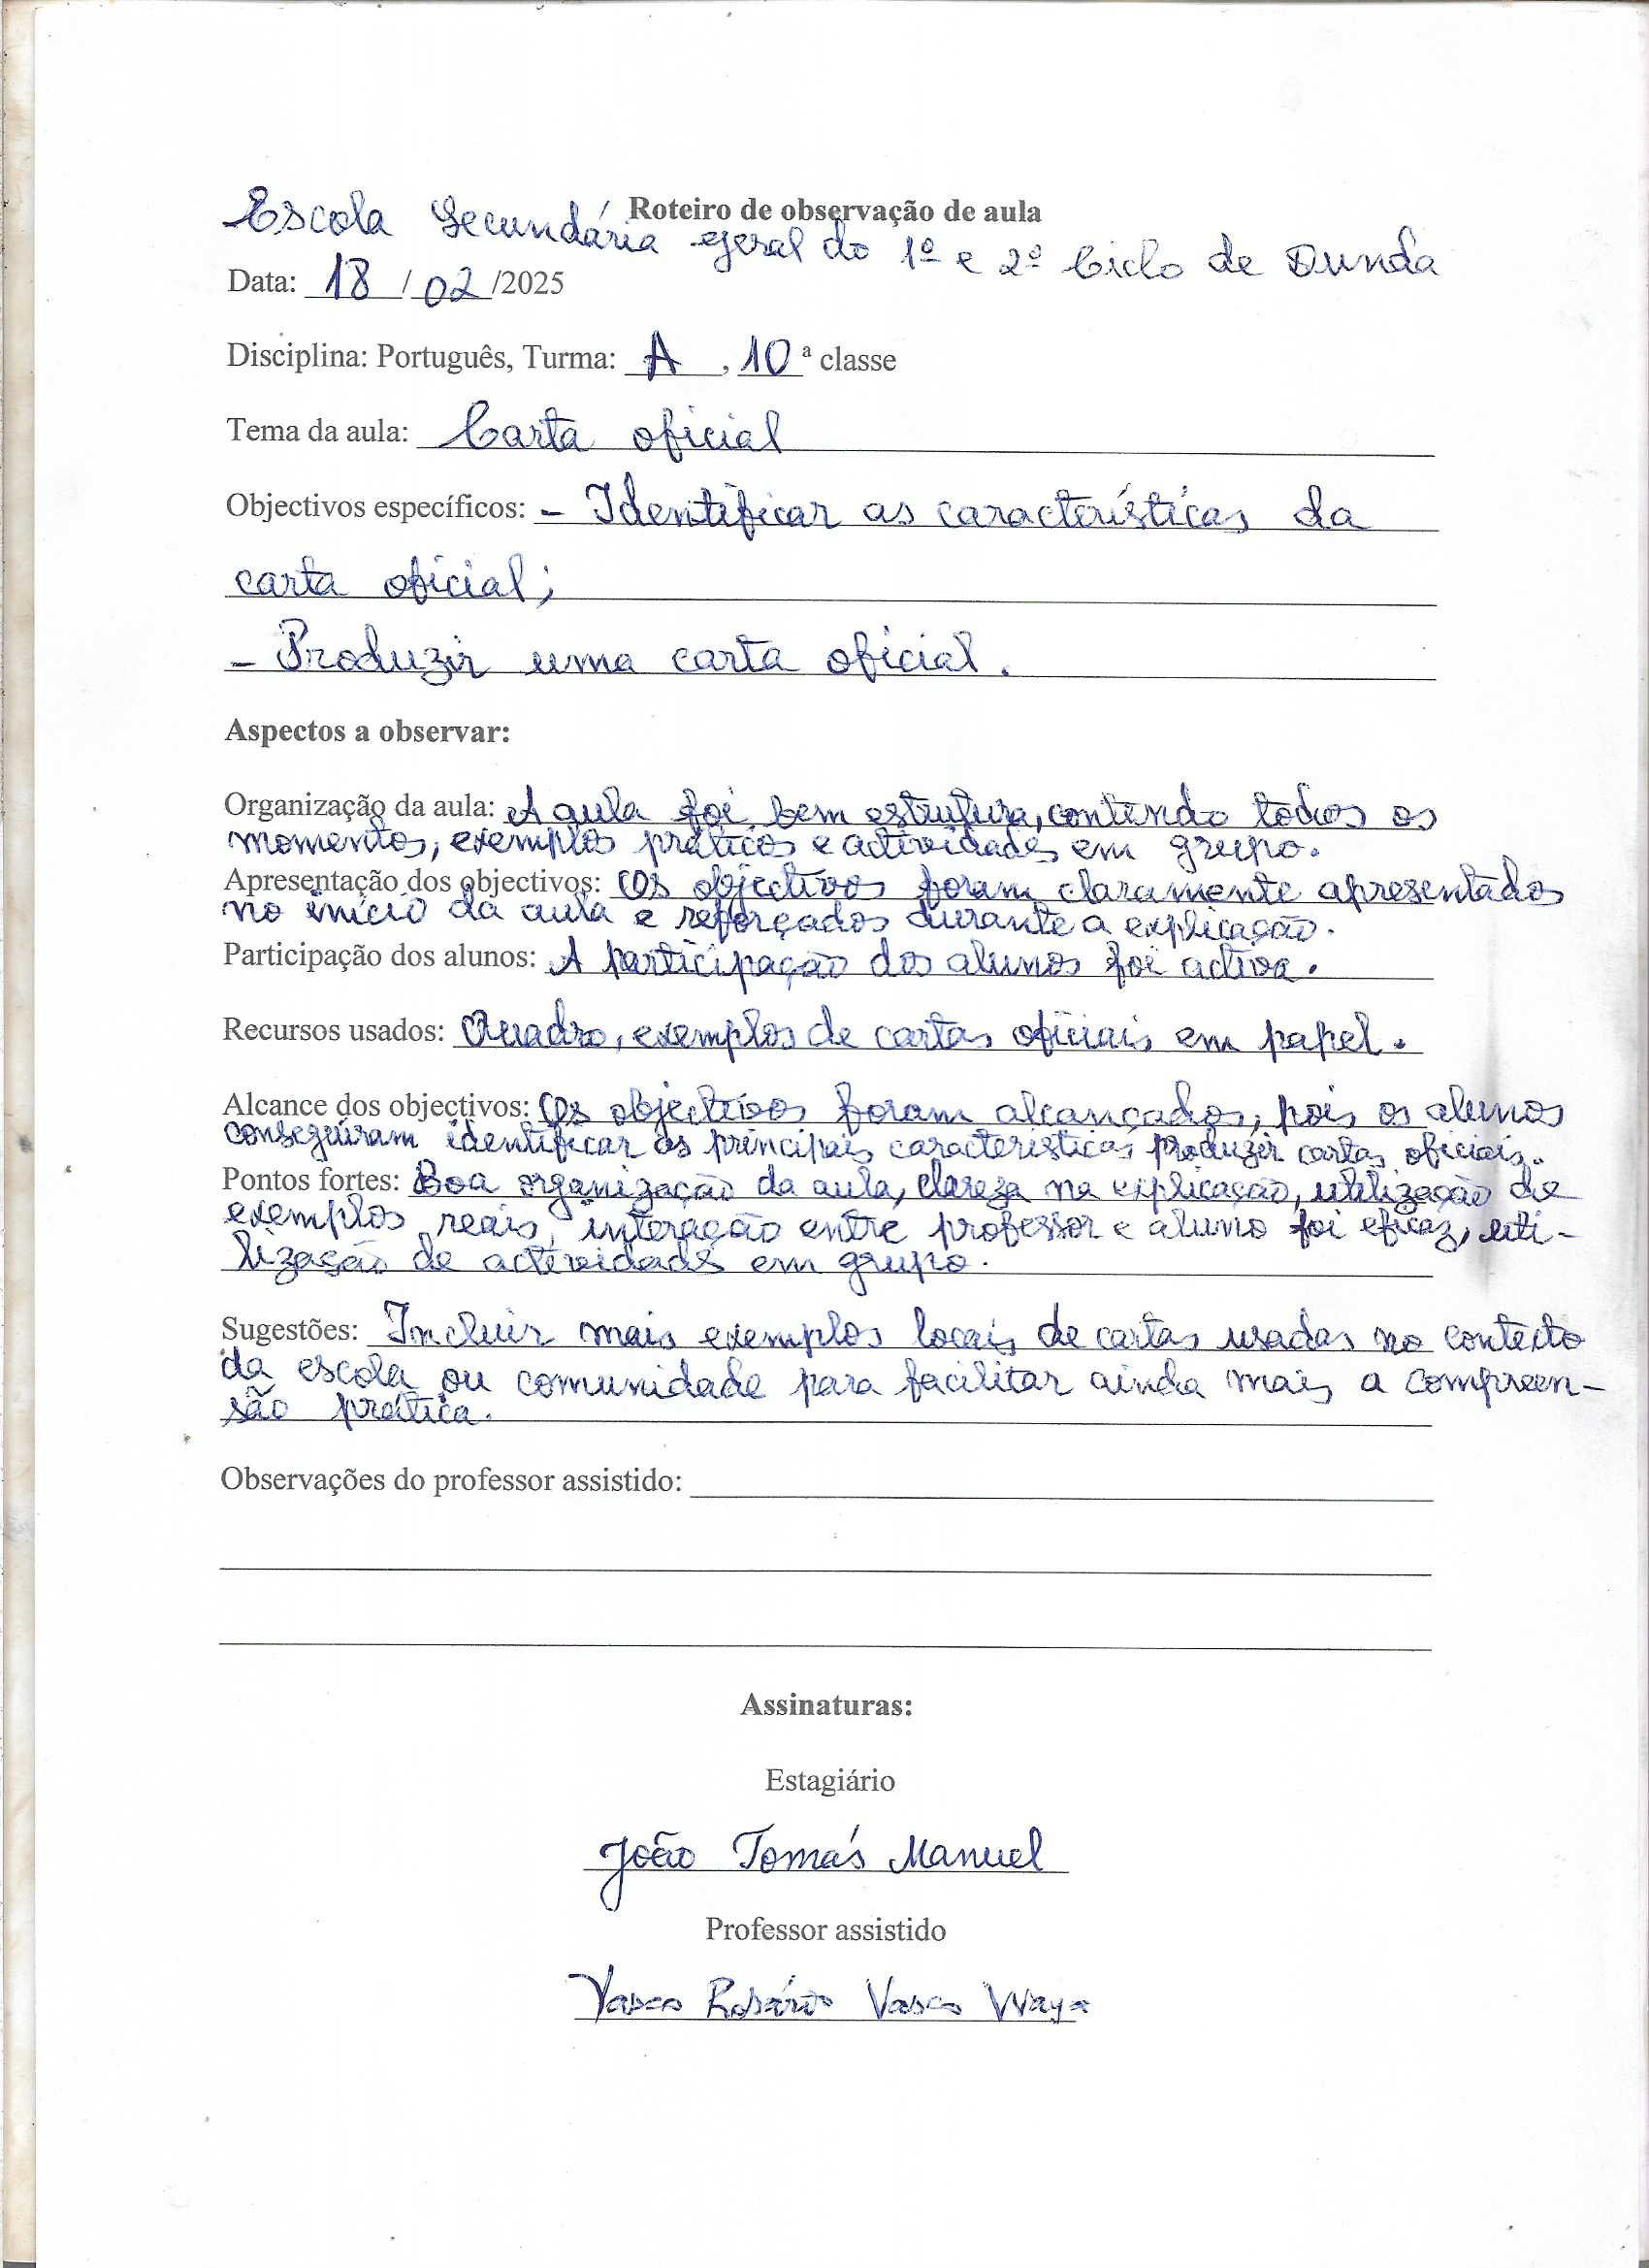 Roteiro de observação de aula
Escola Secundária geral do 1º e 2º Ciclo de Dunda
Data: 18/02/2025
Disciplina: Português, Turma: A, 10ª classe
Tema da aula: Carta oficial
Objectivos específicos: - Identificar as características da
carta oficial;
- Produzir uma carta oficial.
Aspectos a observar:
Organização da aula: A aula foi bem estrutura, contendo todos os
momentos, exemplos práticos e actividades em grupo.
Apresentação dos objectivos: Os objectivos foram claramente apresentados
no início da aula e reforçados durante a explicação.
Participação dos alunos: A participação dos alunos foi activa.
Recursos usados: Quadro, exemplos de cartas oficiais em papel.
Alcance dos objectivos: Os objectivos foram alcançados, pois os alunos
conseguiram identificar as principais características produzir cartas oficiais.
Pontos fortes: Boa organização da aula, clareza na explicação, utilização de
exemplos reais, interação entre professor e aluno foi eficaz, uti-
lização de actividades em grupo.
Sugestões: Incluir mais exemplos locais de cartas usadas no contexto
da escola ou comunidade para facilitar ainda mais a compreen-
são prática.
Observações do professor assistido:
Assinaturas:
Estagiário
João Tomás Manuel
Professor assistido
Vasco Rosário Vasco Waya